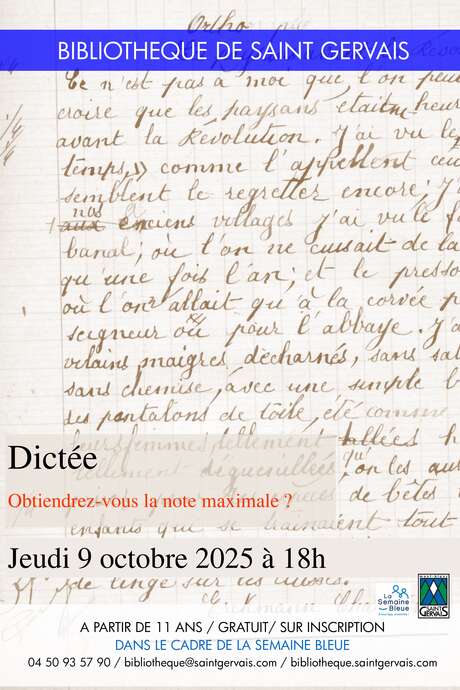 Orthographe
BIBLIOTHEQUE DE SAINT GERVAIS
Ce n'est pas à moi que l'on peu
croire que les paysans étaient heur
avant la Révolution. J'ai vu le
temps,» comme l'appellent ceu
semblent le regretter encore; j'
nos
aux enciens villages j'ai vu le f
banal, où l'on ne cuisait de la
qu'une fois l'an; et le presso
où l'on allait qu'à la corvée p
seigneur ou pour l'abbaye. J'a
vilains maigres, décharnés, sans sa
sans chemise, avec une simple b
des pantalons de toile, été comme
leurs femmes tellement hallées h
tellement dégueuillées qu'on les au
de bêtes
enfants qui se traînaient tout
Dictée
Obtiendrez-vous la note maximale ?
Jeudi 9 octobre 2025 à 18h
de linge sur les cuisses.
La
Semaine
Bleue
MONT-BLANC
SAINT
GERVAIS
A PARTIR DE 11 ANS / GRATUIT/ SUR INSCRIPTION
DANS LE CADRE DE LA SEMAINE BLEUE
04 50 93 57 90 / bibliotheque@saintgervais.com / bibliotheque.saintgervais.com